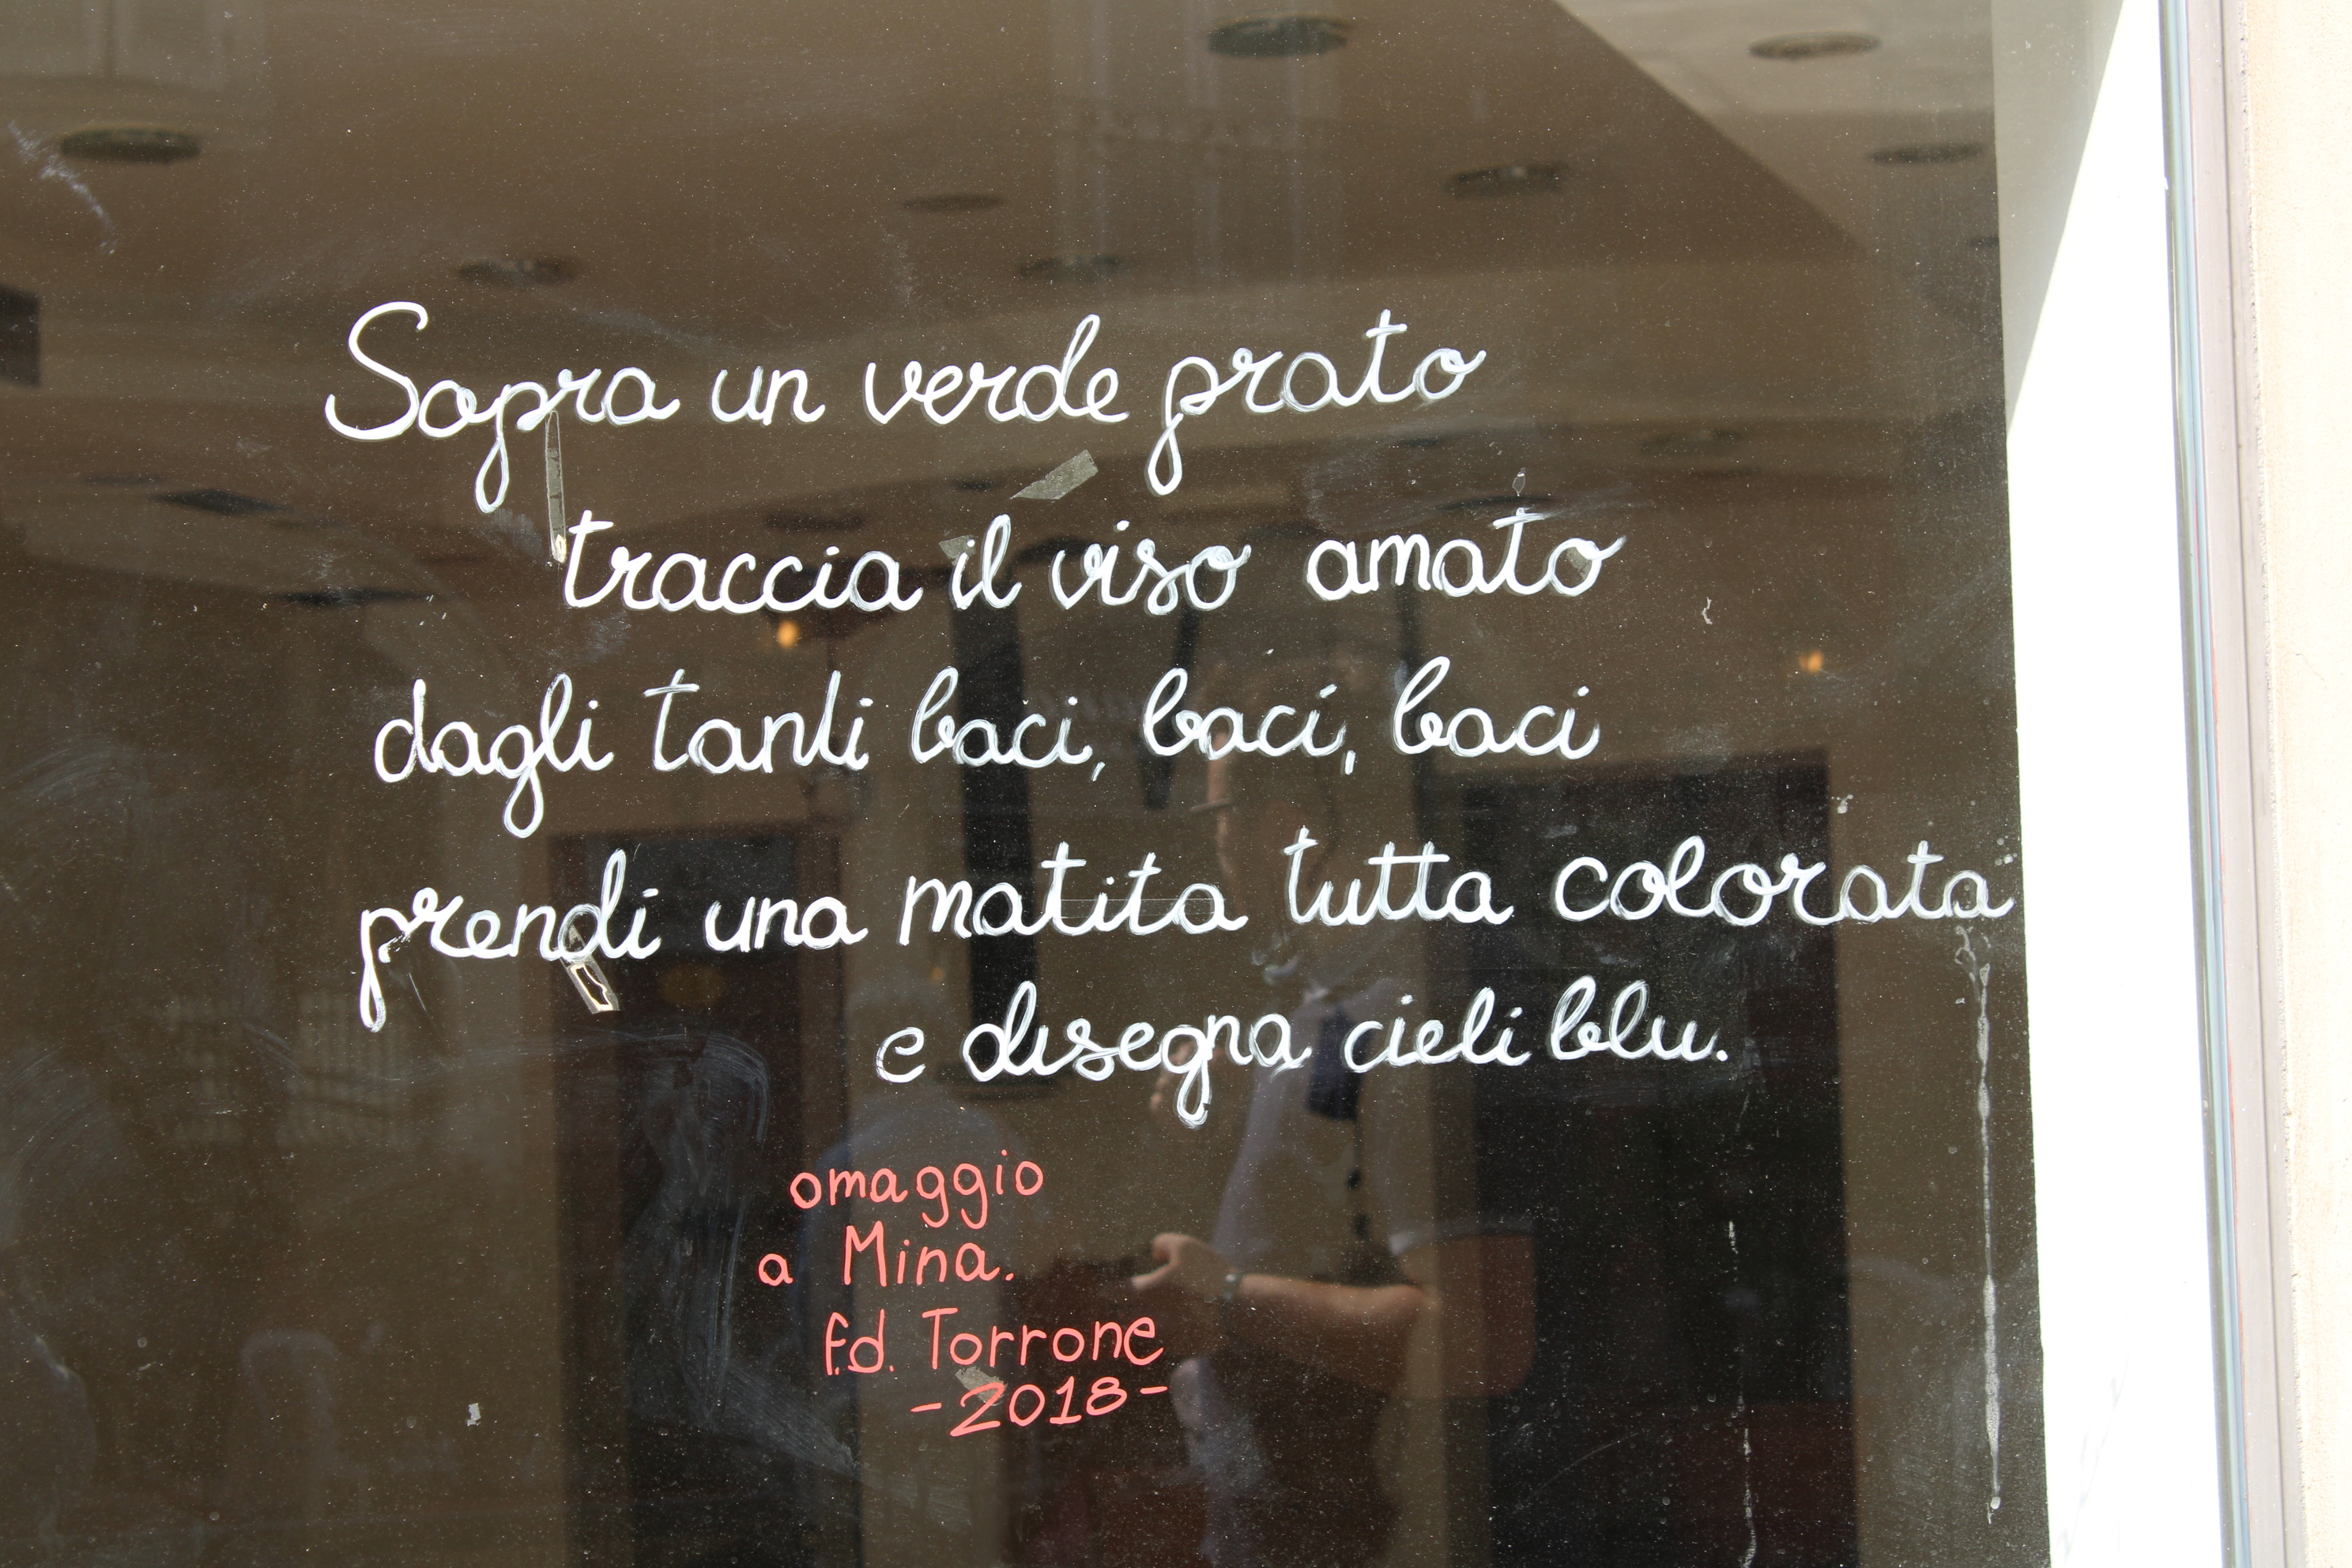 Sopra un verde prato
traccia il viso amato
dagli tanti baci, baci, baci
prendi una matita tutta colorata
e disegna cieli blu.
omaggio
a Mina.
f.d. Torrone
-2018-